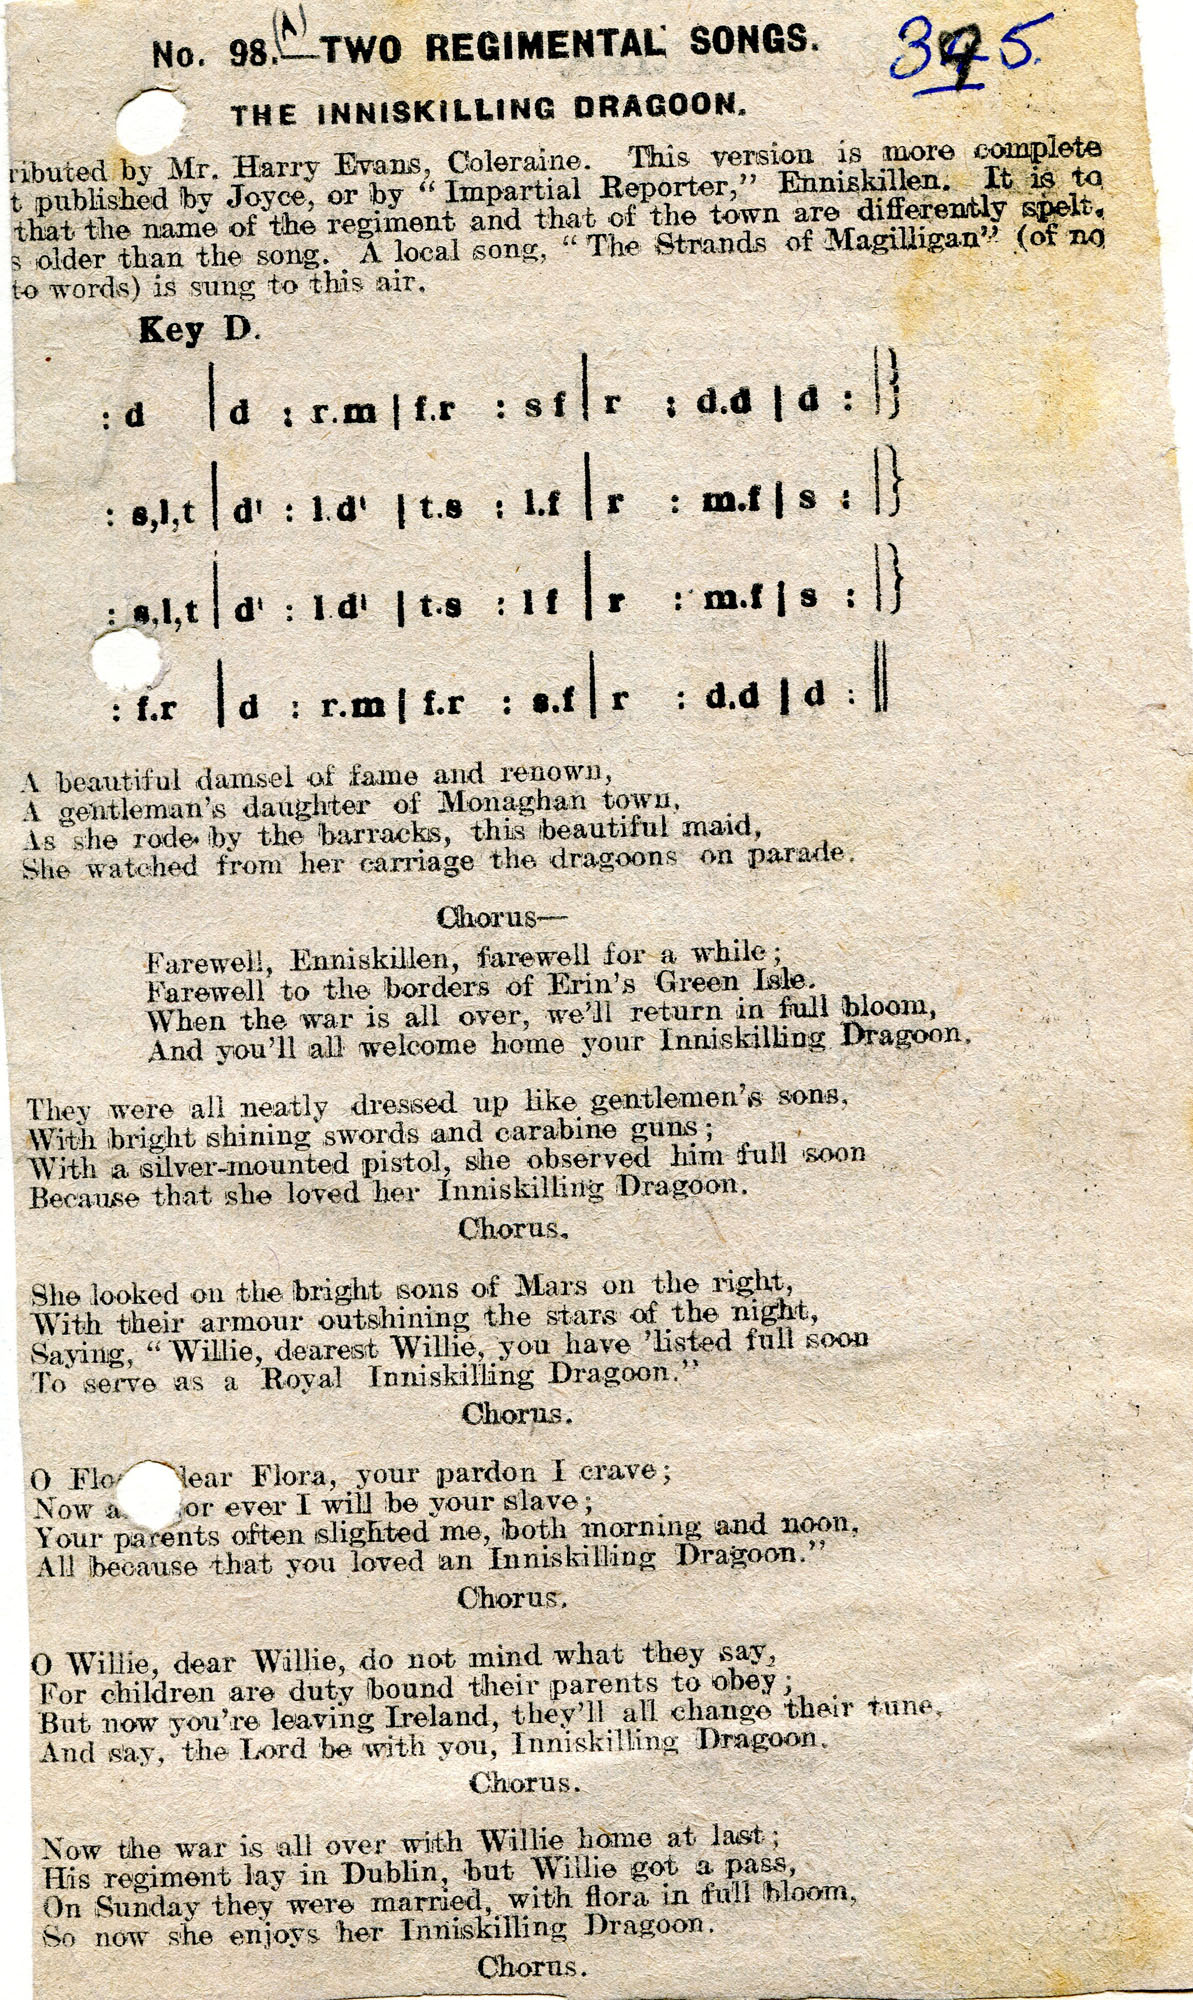 No. 98.(A)—TWO REGIMENTAL SONGS.
395.
THE INNISKILLING DRAGOON.
ributed by Mr. Harry Evans, Coleraine. This version is more complete
t published by Joyce, or by "Impartial Reporter," Enniskillen. It is to
that the name of the regiment and that of the town are differently spelt.
s older than the song. A local song, "The Strands of Magilligan" (of no
to words) is sung to this air.
Key D.
: d | d : r.m | f.r : s f | r : d.d | d : ||}
: s,l,t | d' : l.d' | t.s : l.f | r : m.f | s : ||}
: s,l,t | d' : l.d' | t.s : l f | r : m.f | s : ||}
: f.r | d : r.m | f.r : s.f | r : d.d | d : ||
A beautiful damsel of fame and renown,
A gentleman's daughter of Monaghan town,
As she rode by the barracks, this beautiful maid,
She watched from her carriage the dragoons on parade.
Chorus—
Farewell, Enniskillen, farewell for a while;
Farewell to the borders of Erin's Green Isle.
When the war is all over, we'll return in full bloom,
And you'll all welcome home your Inniskilling Dragoon.
They were all neatly dressed up like gentlemen's sons,
With bright shining swords and carabine guns;
With a silver-mounted pistol, she observed him full soon
Because that she loved her Inniskilling Dragoon.
Chorus.
She looked on the bright sons of Mars on the right,
With their armour outshining the stars of the night,
Saying, "Willie, dearest Willie, you have 'listed full soon
To serve as a Royal Inniskilling Dragoon."
Chorus.
O Flo lear Flora, your pardon I crave;
Now a or ever I will be your slave;
Your parents often slighted me, both morning and noon,
All because that you loved an Inniskilling Dragoon."
Chorus.
O Willie, dear Willie, do not mind what they say,
For children are duty bound their parents to obey;
But now you're leaving Ireland, they'll all change their tune,
And say, the Lord be with you, Inniskilling Dragoon.
Chorus.
Now the war is all over with Willie home at last;
His regiment lay in Dublin, but Willie got a pass,
On Sunday they were married, with flora in full bloom,
So now she enjoys her Inniskilling Dragoon.
Chorus.